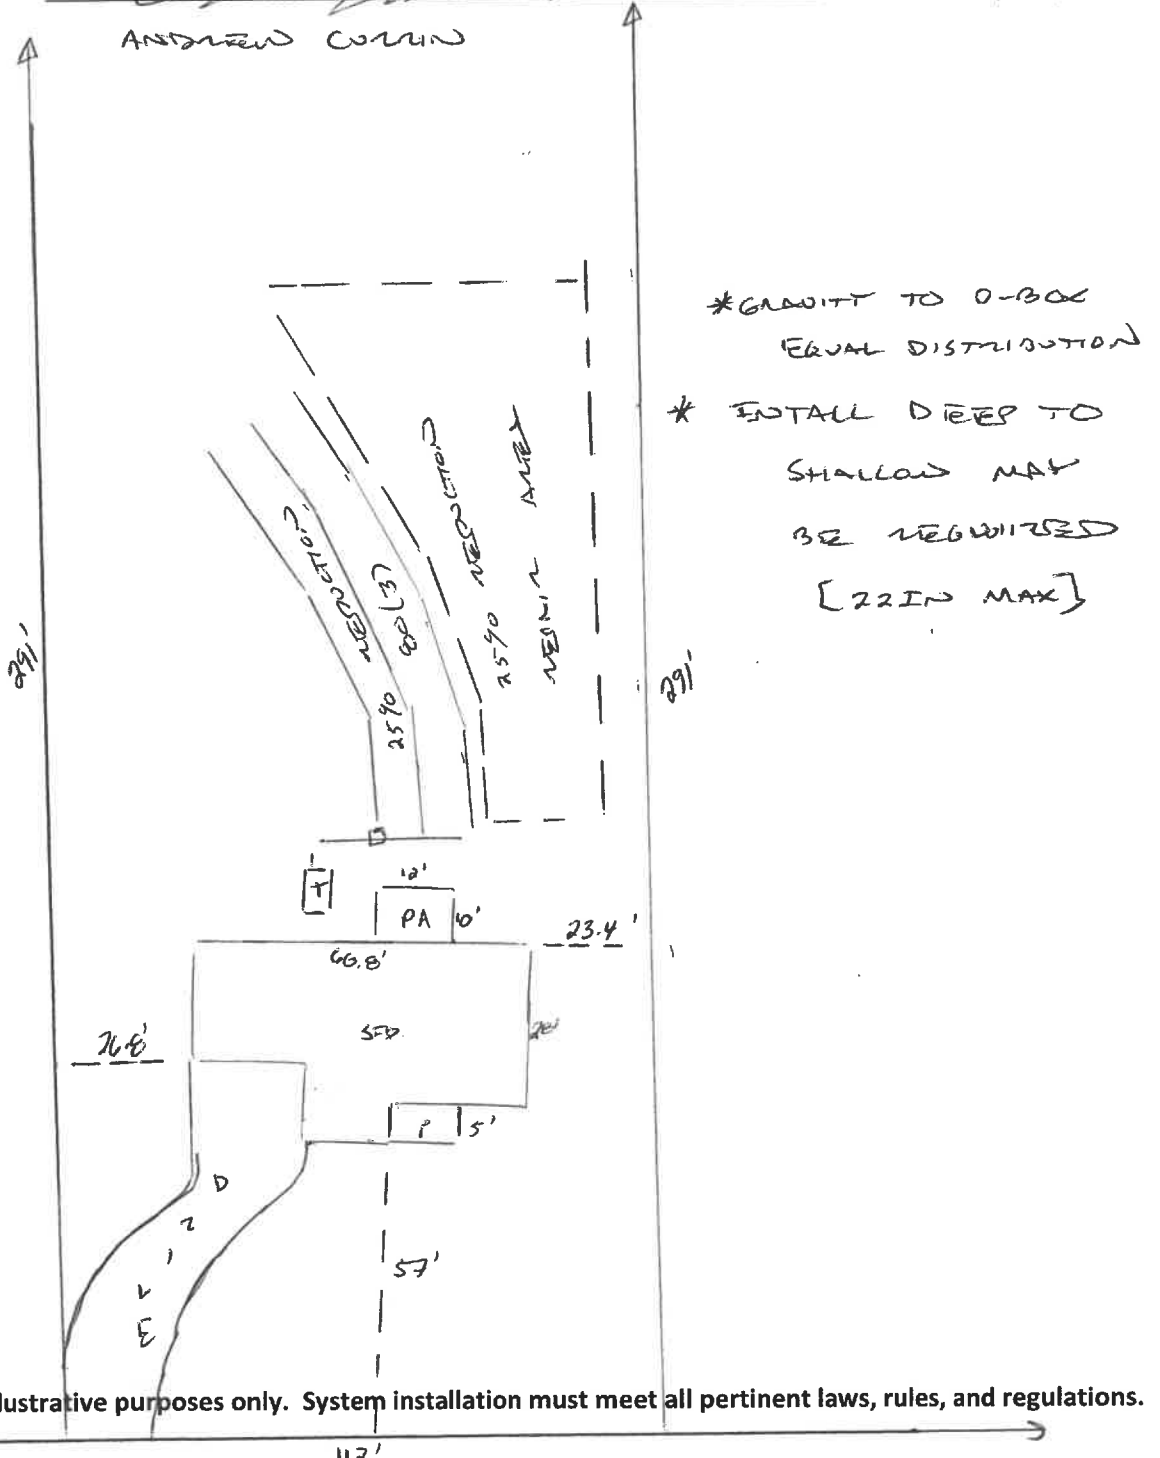 ANDREW CURRIN
*GRAVITY TO D-BOX
EQUAL DISTRIBUTION
* INTALL DEEP TO
SHALLOW MAY
BE REQUIRED
[22IN MAX]
25% REDUCTION
80(3)
25% REDUCTION
REPAIR AREA
291'
291'
T
12'
PA 10'
23.4'
66.8'
SFD
28'
26.8'
P 5'
DRIVE
57'
lustrative purposes only. System installation must meet all pertinent laws, rules, and regulations.
117'